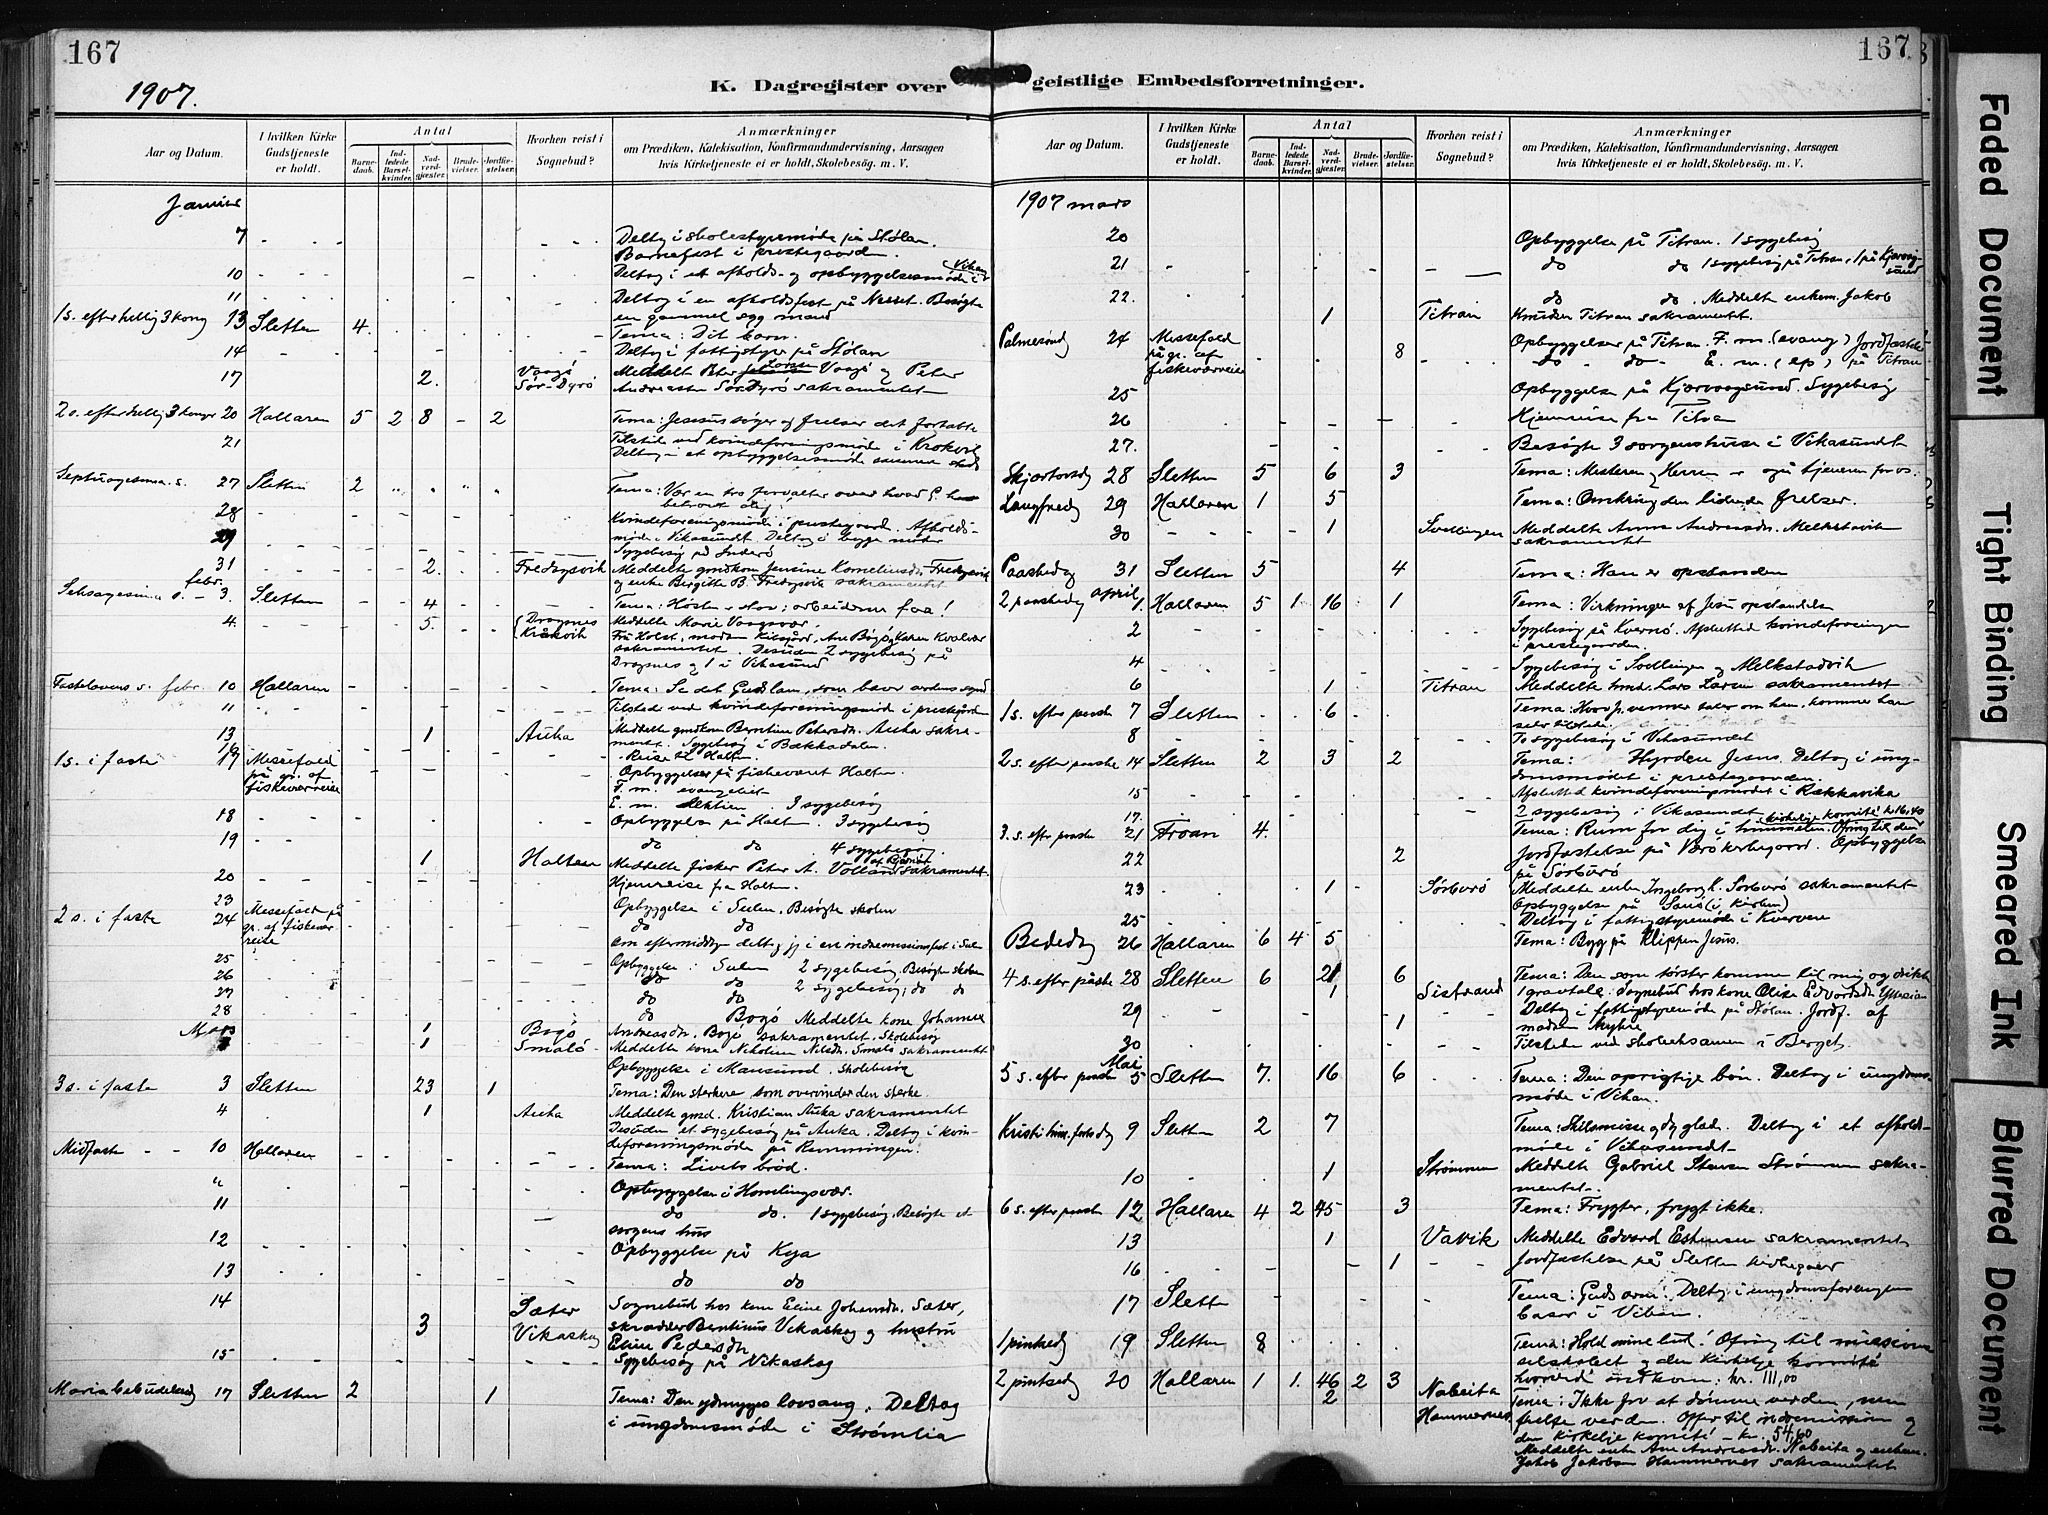 167
1907.
K. Dagregister over
Aar og Datum.
I hvilken Kirke Gudstjeneste er holdt.
Antal
Barnedaab.
Indledede Barselkvinder.
Nadverdgjæster.
Brudevielser.
Jordfæstelser.
Hvorhen reist i Sognebud?
Anmærkninger
om Prædiken, Katekisation, Konfirmandundervisning, Aarsagen
hvis Kirketjeneste ei er holdt, Skolebesøg. m. V.
7 Deltog i skolestyremøde på Stølan.
Barnefest i prestegaarden.
10 Deltog i et afholds- og opbyggelsesmøde i Vikan
11 Deltog i en afholdsfest på Nesset. Besøgte
en gammel syg mand
1 s. efter hellig 3 kong 13 Sletten 4. Tema: Dit barn.
14 Deltog i fattigstyre på Stølan
17 2. Vaagø Meddelt Peter Vaagø og Peter
Sør-Dyrø Andreassen Sør Dyrø sakramentet
2 s. efter hellig 3 konger 20 Hallaren 5 2 8 - 2 Tema: Jesus søger og frelser det fortabte
21 Tilsted ved kvindeforeningsmøde i Krokvik
Deltog i et opbyggelsesmøde sammen sted
Septuagesima s. 27 Sletten 2 Tema: Vær en tro forvalter over hvad G. har
betroet dig!
28 Kvindeforeningsmøde i prestegaard. Afholds-
møde i Vikasundt. Deltog i begge møder
29 Sygebesøg på Inderø
31 2. Fredagsvik Meddelte gmdkom Jensine Korneliusdr. Fredagsvik
og enke Bergitte B. Fredagsvik sakramentet
febr.
Seksagesima s. - 3. Sletten 4 Tema: Høsten er stor; arbeiderne faa!
4. 5. Dragsnes Meddelte Marie Vaagsvær.
Kråkvik Fru Holst, madam Kilsgård, Ane Bøgø, Karen Kvalvær
sakramentet. Desuden 2 sygebesøg på
Dragsnes og 1 i Vikasund
Fastelavens s. febr. 10 Hallaren Tema: Se det Guds lam, som bær verdens synd
11 Tilstede ved kvindeforeningsmøde i prestegården
13 1 Auka Meddelte gmdkom Berntine Petersdr. Auka sakra-
mentet. Sygebesøg i Bækkadalen.
16 Reise til Halten.
1 s. i faste 17 Messefald Opbyggelser på fiskeværet Halten.
på gr. af F. m. evangeliet
fiskeværreise E. m. lektien. 3 sygebesøg
18 Opbyggelse på Halten. 3 sygebesøg
19 do do 4 sygebesøg.
1 Halten Meddelte fisker Peter A. Volland sakramentet
20 Hjemreise fra Halten.
23 Opbyggelse i Sulen. Besøgte skolen
2 s. i faste 24 Messefald på do do
gr. af fiskevær- Om eftermiddagen deltog jeg i en indremissionsfest i Sulen
reise
25 Opbyggelse i Sulen 2 sygebesøg. Besøgte skolen
26 do do 2 sygebesøg; do do
27 do do
28 do Bogø Meddelte kone Johanne
Mars 1 Bogø Andreasdr. Bogø sakramentet. Skolebesøg
1 Smalø Meddelte kone Nikoline Nilsdr. Smalø sakramentet
Opbyggelse i Mausund. Skolebesøg
3 s. i faste 3 Sletten 23 1 Tema: Den sterkere som overvinder den sterke.
4 1 Auka Meddelte gmd. Kristian Auka sakramentet
Desuden et sygebesøg på Auka. Deltog i kvin-
deforeningsmøde på Ramningen.
Midfaste - - 10 Hallaren Tema: Livets brød.
" Opbyggelse i Humlingsvær.
11 do do. 1 sygebesøg. Besøgte et
sorgens hus
12 Opbyggelse på Kya
13 do do
14 Sæter Sognebud hos kone Eline Johansdr. Sæter,
3 Vikaskog skrædder Bentinus Vikaskog og hustru
Eline Pedersdr.
15 Sygebesøg på Vikaskog
Maria bebudelsesdag 17 Sletten 2 1 Tema: Den ydmyges lovsang. Deltog
i ungdomsmøde i Strømlia
167
geistlige Embedsforretninger.
Aar og Datum.
I hvilken Kirke Gudstjeneste er holdt.
Antal
Barnedaab.
Indledede Barselkvinder.
Nadverdgjæster.
Brudevielser.
Jordfæstelser.
Hvorhen reist i Sognebud?
Anmærkninger
om Prædiken, Katekisation, Konfirmandundervisning, Aarsagen
hvis Kirketjeneste ei er holdt, Skolebesøg. m. V.
1907 mars
20 Opbyggelse på Titran. 1 sygebesøg
21 do do 1 sygebesøg på Titran, 1 på Kjørvåg-
sund
22. do do. Meddelte enkem. Jakob
1 Titran Knudsen Titran sakramentet.
Palmesønd 24 Messefald 8 Opbyggelser på Titran. F. m. (evang) Jordfæstelse
på gr. af do - do - E. m. (ep) på Titran
fiskeværreise
25 Opbyggelse på Kjørvaagsund. Sygebesøg
26 Hjemreise fra Titra
27. Besøgte 3 sorgenshuse i Vikasundt
Skjærtorsdg 28 Sletten 5 6 3 Tema: Mesteren og Herren er også tjeneren for os.
Langfredg 29 Hallaren 1 5 Tema: Omkring den lidende frelser.
30 1 Svellingen Meddelte Anna Andreasdr. Melkstavik
sakramentet
Paaskedag 31 Sletten 5 4 Tema: Han er opstanden
2 paaskedag april 1. Hallaren 5 1 16 1 Tema: Virkningen af Jesu opstandelse
2 Sygebesøg på Kvernø. Afsluttet kvindeforeningen
i prestegaarden.
4 Sygebesøg i Svellingen og Melkstadvik
6 1 Titran Meddelte hmd. Lars Larsen sakramentet
1 s. efter paaske 7 Sletten 6 Tema: Hvor J. venner taler om ham, kommer han
selv tilstede.
8 To sygebesøg i Vikasundet
2 s. efter paaske 14 Sletten 2 3 2 Tema: Hyrden Jesus. Deltog i ung-
domsmødet i prestegaarden.
15 Afsluttet kvindeforeningsmødet i Rækkavika
17. 2 sygebesøg i Vikasundet
kirkelige komité kr 16,40
3. s. efter paaske 21 Froan 4. Tema: Rum for dig i himmelen. Ofring til den
22 2 Jordfæstelse på Værø kirkegaard. Opbyggelse
på Sørburø
23 1 Sørburø Meddelte enke Ingeborg K. Sørburø sakramentet
Opbyggelse på Saurø (i kirken)
25 Deltog i fattigstyremøde i Kverven
Bededag 26 Hallaren 6 4 5 Tema: Byg på klippen Jesus.
4 s. efter påske 28 Sletten 6 21 6 Tema: Den som tørster komme til mig og drikke
1 Sistrand 1 gravtale. Sognebud hos kone Olise Edvardsdr
29 Deltog i fattigstyremøde på Stølan. Jordf. af
1 madam Myhre
30 Tilstede ved skoleeksamen i Berget.
Mai
5 s. efter paaske 5 Sletten 7. 16 6 Tema: Den oprigtige bøn. Deltog i ungdoms-
møde i Vikan.
Kristi him. fartsdg 9 Sletten 2 7 Tema: Skilsmisse og dg glad. Deltog i et afholds-
møde i Vikasundt
10 1 Strømmen Meddelte Gabriel Strømmen sakra-
mentet.
6 s. efter paaske 12 Hallaren 4 2 45 3 Tema: Frygter, frygt ikke.
13 1 Vavik Meddelte Edvard Estensen sakramentet
16 1 Jordfæstelse på Sletten kirkegaard
17 Sletten Tema: Guds Deltog i ungdomsforeningens
basar i Vikan.
1 pinsedg 19 Sletten 8 Tema: Hold mine bud! Ofring til missions
selskabet og den kirkelige komité
hvorved indkom: kr. 111,00
2 pintsedg 20 Hallaren 1 1. 46 2 3 Nabeita Tema: Ikke for at dømme verden, men
2 Hammernes frelse verden. Offer til indremission og
den kirkelige komité - kr. 54,60
Meddelte enke Ane Andreasdr. Nabeita og enkem.
Jakob Jakobsen Hammernes sakramentet
Faded Document
Tight Binding
Smeared Ink
Blurred Document